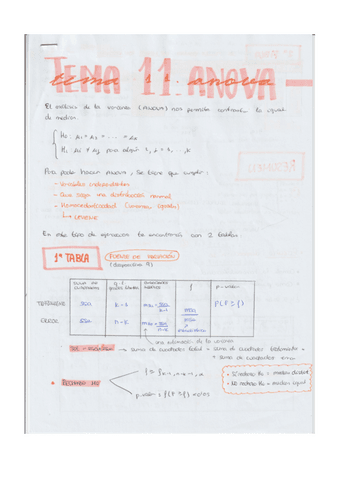 TEMA 11. ANOVA
tema 11. anova
El análisis de la varianza (ANOVA) nos permite contrastar la igual.
de medias.
H0: μ1 = μ2 = ... = μk
H1: μi ≠ μj para algún i, j = 1, ..., k
Para poder hacer ANOVA, se tiene que cumplir:
- Variables independientes
- Que siga una distribución normal
- Homocedasticidad (varianzas iguales)
↳ LEVENE
En este tipo de ejercicios te encontrarás con 2 tablas:
1ª TABLA
FUENTE DE VARIACIÓN
(diapositiva 9)
suma de cuadrados
g.l. grados libertad
cuadrados medios
f
p-valor
k-1
P(F ≥ f)
ERROR
n-k
una estimación de la varianza
→ suma de cuadrados total = suma de cuadrados tratamiento +
+ suma de cuadrados error
RECHAZO H0
f ≥ f k-1, n-k, 1-α
- Si rechazo H0 = medias distint
- NO rechazo H0 = medias igual